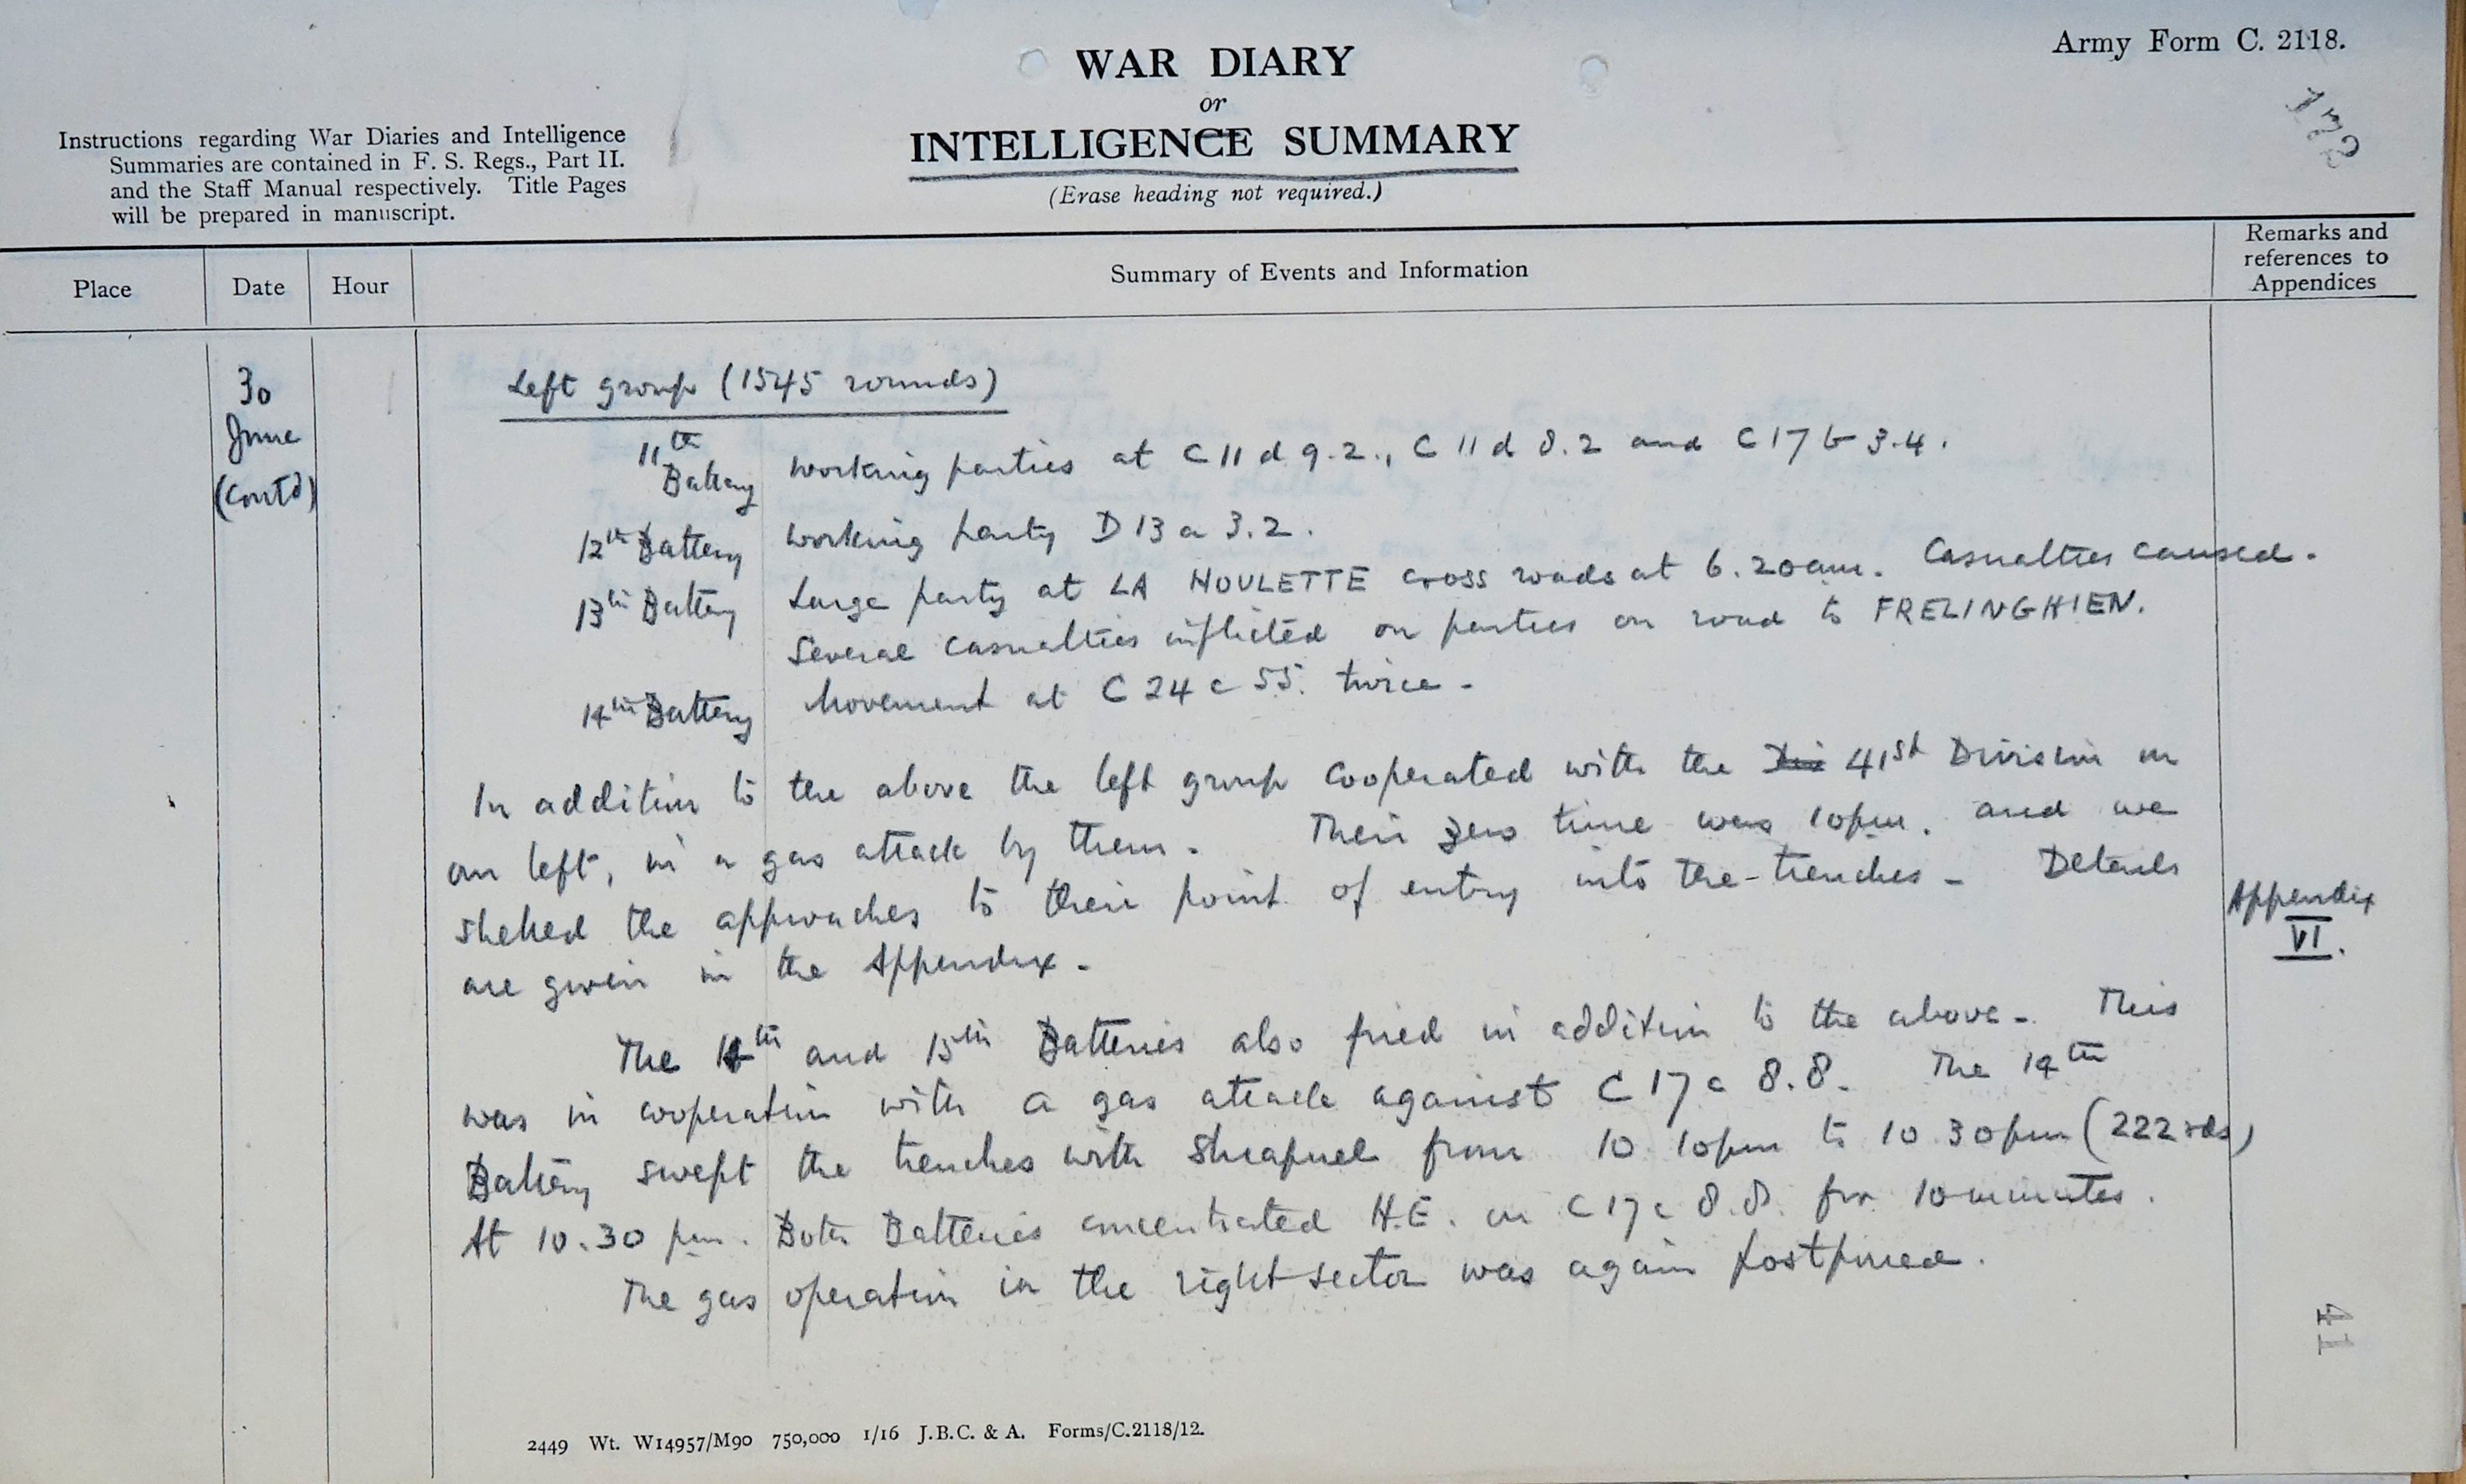 Army Form C. 2118.
172
WAR DIARY
or
INTELLIGENCE SUMMARY
(Erase heading not required.)
Instructions regarding War Diaries and Intelligence
Summaries are contained in F. S. Regs., Part II.
and the Staff Manual respectively. Title Pages
will be prepared in manuscript.
Place
Date
Hour
Summary of Events and Information
Remarks and
references to
Appendices
30
June
(Contd)
Left group (1545 rounds)
11th Battery working parties at C 11 d 9.2., C 11 d 8.2 and C 17 b 3.4.
12th Battery working party D 13 a 3.2.
13th Battery Large party at LA HOULETTE cross roads at 6.20am. Casualties caused.
Several casualties inflicted on parties on road to FRELINGHIEN.
14th Battery Movement at C 24 c 55. twice.
In addition to the above the left group cooperated with the Div 41st Division on
our left, in a gas attack by them. Their zero time was 10pm. and we
shelled the approaches to their point of entry into the trenches. Details
are given in the Appendix.
Appendix
VI.
The 14th and 15th Batteries also fired in addition to the above. This
was in cooperation with a gas attack against C 17 c 8.8. The 14th
Battery swept the trenches with shrapnel from 10.10pm to 10.30pm (222 rds)
At 10.30 pm. Both Batteries concentrated H.E. on C 17 c 8.8. for 10 minutes.
The gas operation in the right sector was again postponed.
41
2449 Wt. W14957/M90 750,000 1/16 J.B.C. & A. Forms/C.2118/12.